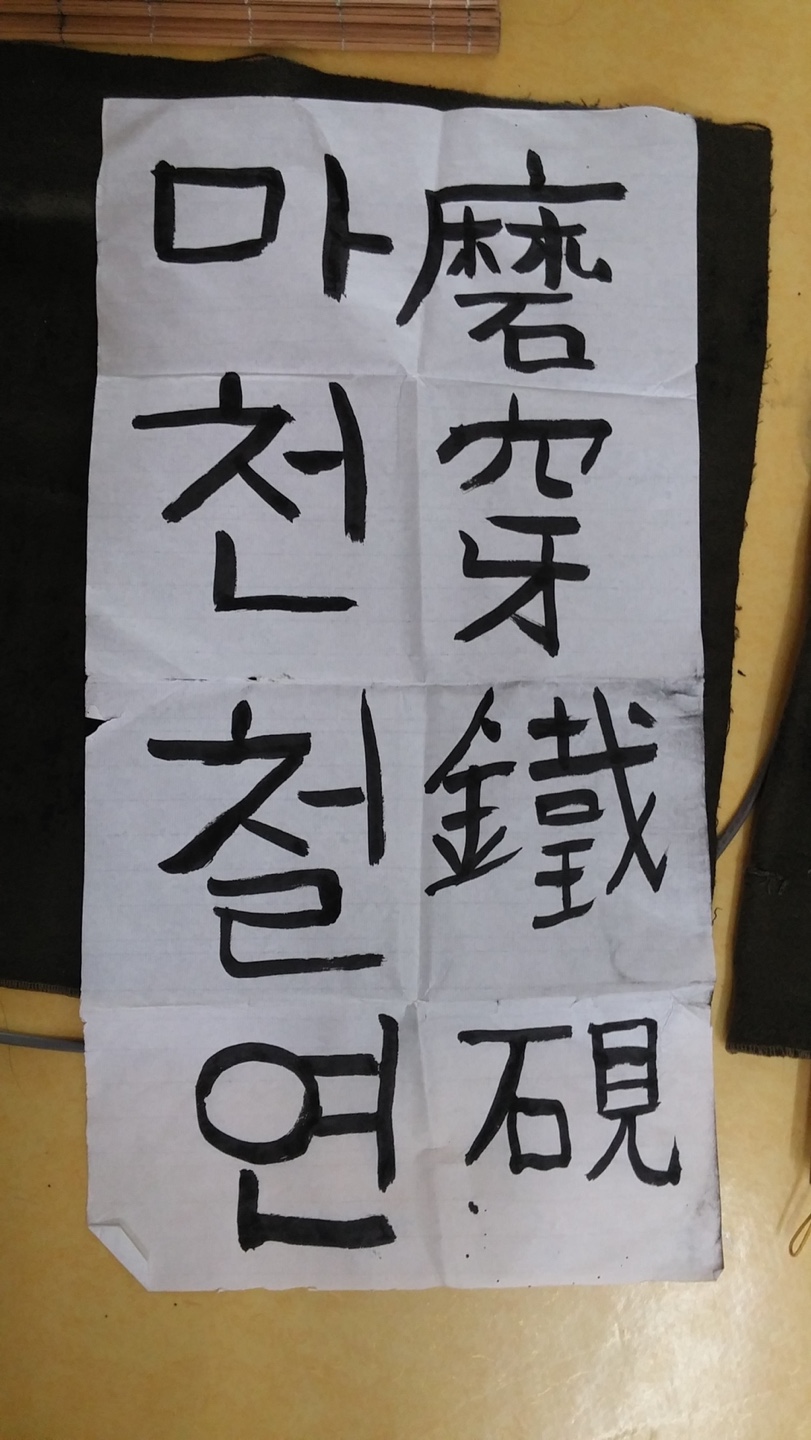 磨穿鐵硯
마천철연